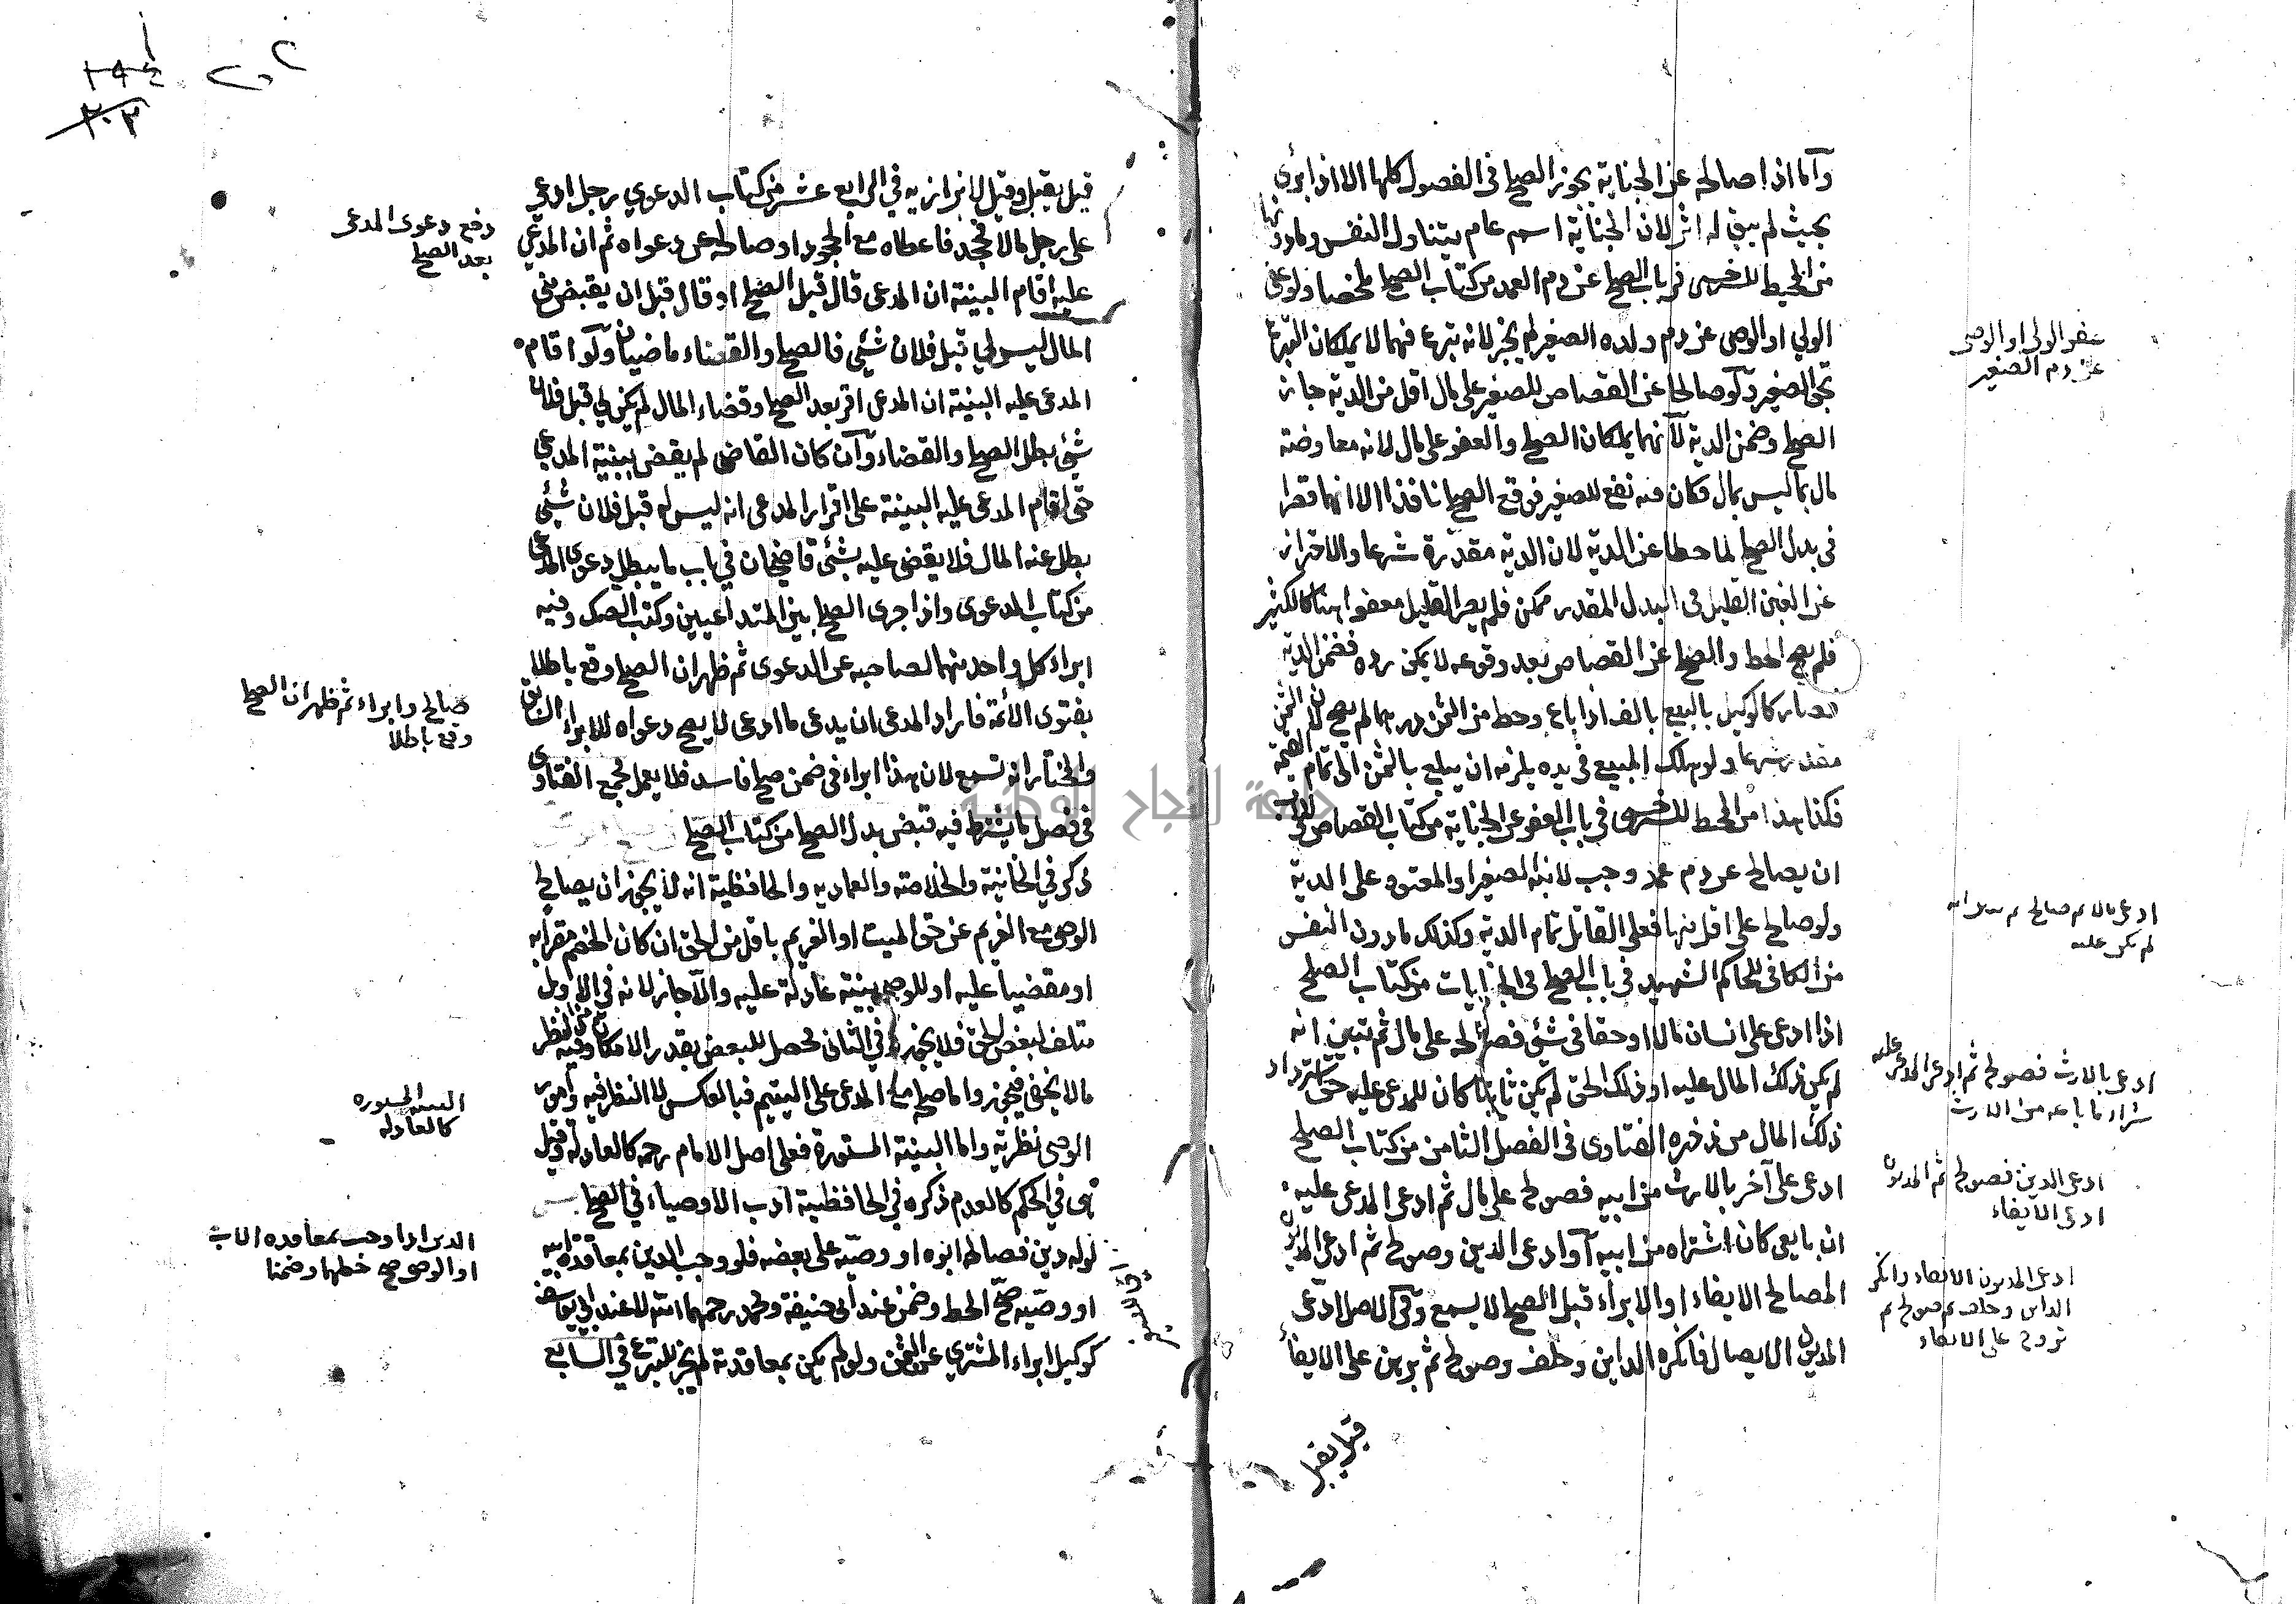 واما اذا صالحه عن الجناية يجوز الصلح فى الفصول كلها الا اذا برئ
بحيث لم يبق له اثر لان الجناية اسم عام يتناول النفس وما دونها
من المحيط للسرخسى فى باب الصلح عن دم العمد من كتاب الصلح ملخصا ولو عفى
الولي او الوصى عن دم ولده الصغير لم يجز لانه تبرع فيهما لا يملكان التبرع
بحق الصغير ولو صالحا عن القصاص للصغير على مال اقل من الدية جاز
الصلح وضمن الدية لانهما يملكان الصلح والعفو على مال لانه معاوضة
مال بما ليس بمال فكان فيه نفع للصغير فوقع الصلح نافذا الا انهما قصرا
فى بدل الصلح لما حطا عن الدية لان الدية مقدرة شرعا والاحتراز
عن الغبن القليل فى البدل المقدر ممكن فلم يصر القليل معفوا هنا كالكثير
فلم يصح الحط والصلح عن القصاص بعد وقوعه لا يمكن رده فضمن الدية
فصار كالوكيل بالبيع بالف اذا باع وحط من الثمن درهما لم يصح لان الثمن
مقدر شرعا ولو هلك المبيع فى يده يلزمه ان يبلغ بالثمن الى تمام القيمة
فكذا هذا من المحيط للسرخسى فى باب العفو عن الجناية من كتاب القصاص للاب
ان يصالح عن دم عمد وجب لابنه الصغير او المعتوه على الدية
ولو صالح على اقل منها فعلى القاتل تمام الدية وكذلك ما دون النفس
من الكافى للحاكم الشهيد فى باب الصلح فى الجنايات من كتاب الصلح
اذا ادعى على انسان مالا او حقا فى شئ فصالحه على مال ثم تبين انه
لم يكن ذلك المال عليه او ذلك الحق لم يكن ثابتا كان للمدعى عليه حق استرداد
ذلك المال من ذخيره الفتاوى فى الفصل الثامن من كتاب الصلح
ادعى على آخر بالارث من ابيه فصولح على مال ثم ادعى المدعى عليه
ان بايعى كان اشتراه من ابيه او ادعى الدين وصولح ثم ادعى المديون
المصالح الايفاء او الابراء قبل الصلح لا يسمع وفى الاصل ادعى
المديون الايصال فانكره الداين وحلف وصولح ثم برهن على الايفا
قيل يقبل
عفو الولى او الوصى
عن دم الصغير
ادعى مالا ثم صالح ثم تبين انه
لم يكن عليه
ادعى بالارث فصولح ثم ادعى المدعى عليه
شراء ما باعه من الارث
ادعى الدين فصولح ثم المديون
ادعى الايفاء
ادعى المديون الايفاء وانكر
الداين وحلف ثم صولح ثم
برهن على الايفاء
قيل يقبل وقيل لا بزازيه في الرابع عشر من كتاب الدعوي رجل ادعى
على رجل مالا فجحد فاعطاه مع الجحود او صالحه عن دعواه ثم ان المدعى
عليه اقام البينة ان المدعى قال قبل الصلح او قال قبل ان يقبض منى
المال ليس لي قبل فلان شئي فالصلح والقضاء ماضيان ولو اقام
المدعى عليه البينة ان المدعى اقر بعد الصلح وقضاء المال لم يكن لي قبل فلان
شئي بطل الصلح والقضاء وان كان القاضى لم يقض ببينة المدعي
حتى اقام المدعى عليه البينة على اقرار المدعى انه ليس له قبل فلان شئى
بطل عنه المال فلا يقضى عليه بشئى قاضيخان في باب ما يبطل دعوى المدعى
من كتاب الدعوى واذا جرى الصلح بين المتداعيين وكتب الصك وفيه
ابراء كل واحد منهما لصاحبه عن الدعوى ثم ظهر ان الصلح وقع باطلا
بفتوى الائمة فاراد المدعى ان يدعى ما ادعى لا يصح دعواه للابراء السابق
والمختار انه تسمع لان هذا ابراء فى ضمن صلح فاسد فلا يعمل مجمع الفتاوى
فى فصل ما يشترط فيه قبض بدل الصلح من كتاب الصلح
ذكر في الخانية والخلاصة والعماديه والحافظية انه لا يجوز ان يصالح
الوصى مع الغريم عن حق الميت او الغريم باقل من الحق ان كان الخصم مقرا به
او مقضيا عليه او للوصى بينة عادلة عليه والا جاز لانه في الاول
متلف لبعض الحق فلا يجوز وفي الثانى محصل للبعض بقدر الامكان وفيه من النظر
مالا يخفى فيجوز واما صلح مع المدعى على اليتيم فبالعكس للنظر فيه وامور
الوصى نظرية واما البينة المستورة فعلى اصل الامام رحمه كالعادلة وقيل
هى في الحكم كالعدم ذكره في الحافظية ادب الاوصياء في الصلح
لوله دين فصالحه ابوه او وصيه على بعضه فلو وجب الدين بمعاقدة ابيه
او وصيه صح الحط وضمن عند ابى حنيفة ومحمد رحمهما الله لا عند ابى يوسف
كوكيل ابراء المشتري عن الثمن ولو لم يكن بمعاقدة لم يجز للتبرع في السابع
دفع دعوى المدعى
بعد الصلح
صالح وابراء ثم ظهر ان الصلح
وقع باطلا
البينه المستوره
كالعادله
الدين اذا وجب بمعاقده الاب
او الوصى صح حطهما وضمنا
٢٠٢
٢٠٣
جامعة النجاح الوطنية